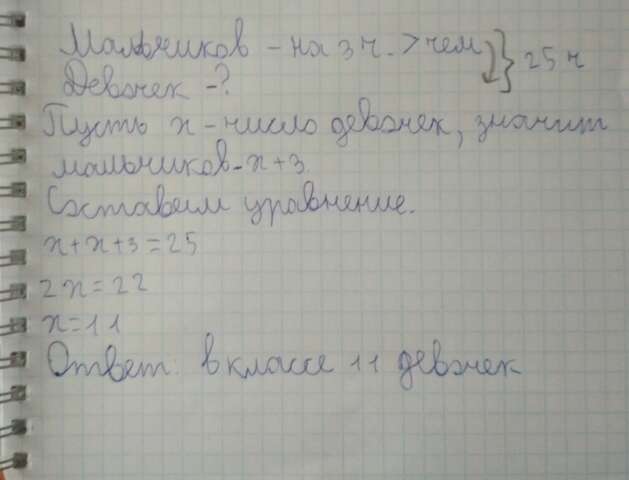 Мальчиков - на 3 ч. > чем } 25 ч
Девочек - ?
Пусть x - число девочек, значит
мальчиков - x + 3.
Составим уравнение.
x + x + 3 = 25
2x = 22
x = 11
Ответ: в классе 11 девочек